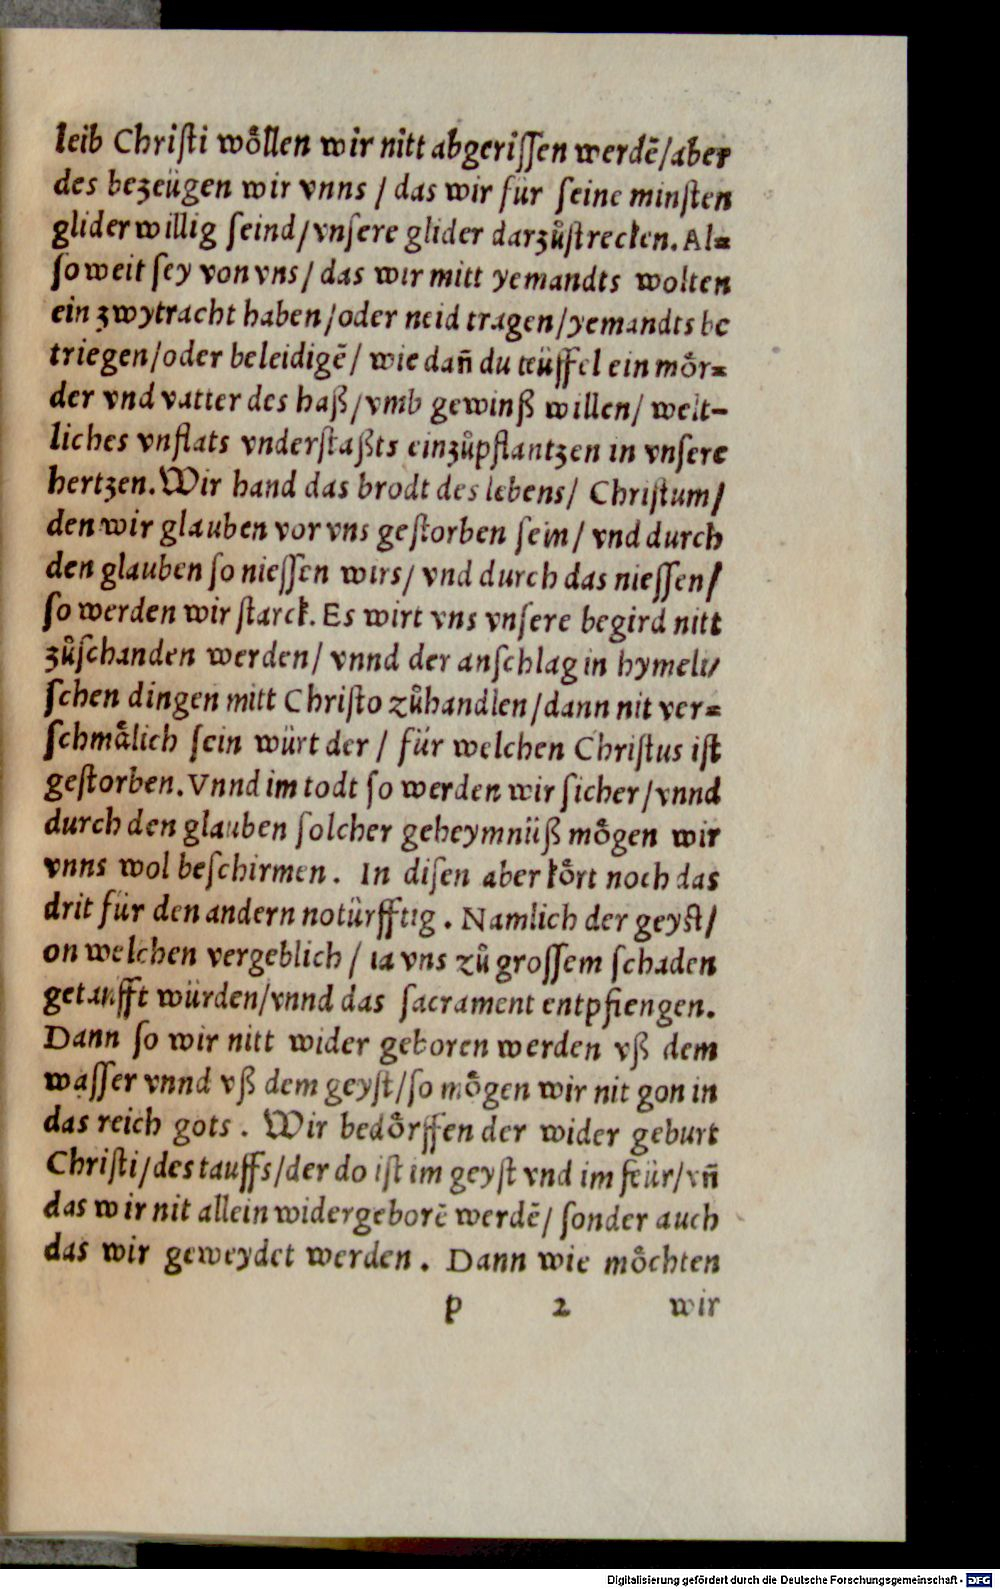 leib Chriſti woͤllen wir nitt abgeriſſen werdē/aber
des bezeügen wir vnns / das wir für ſeine minſten
glider willig ſeind/vnſere glider darzůſtrecken. Al⸗
ſo weit ſey von vns/ das wir mitt yemandts wolten
ein zwytracht haben/oder neid tragen/yemandts be
triegen/oder beleidigē/ wie dañ du teüffel ein moͤr⸗
der vnd vatter des haß/vmb gewinß willen/ welt-
liches vnflats vnderſtaßts einzůpflantzen in vnſere
hertzen. Wir hand das brodt des lebens/ Chriſtum/
den wir glauben vor vns geſtorben ſein/ vnd durch
den glauben ſo nieſſen wirs/ vnd durch das nieſſen/
ſo werden wir ſtarck. Es wirt vns vnſere begird nitt
zůſchanden werden/ vnnd der anſchlag in hymeli/
ſchen dingen mitt Chriſto zůhandlen/dann nit ver⸗
ſchmaͤlich ſein würt der / für welchen Chriſtus iſt
geſtorben. Vnnd im todt ſo werden wir ſicher/vnnd
durch den glauben ſolcher geheymnüß moͤgen wir
vnns wol beſchirmen. In diſen aber koͤrt noch das
drit für den andern notürfftig. Namlich der geyſt/
on welchen vergeblich / ia vns zů groſſem ſchaden
getaufft würden/vnnd das ſacrament entpfiengen.
Dann ſo wir nitt wider geboren werden vß dem
waſſer vnnd vß dem geyſt/ſo moͤgen wir nit gon in
das reich gots. Wir bedoͤrffen der wider geburt
Chriſti/des tauffs/der do iſt im geyſt vnd im feür/vñ
das wir nit allein widergeborē werdē/ ſonder auch
das wir geweydet werden. Dann wie moͤchten
p 2 wir
Digitalisierung gefördert durch die Deutsche Forschungsgemeinschaft - DFG